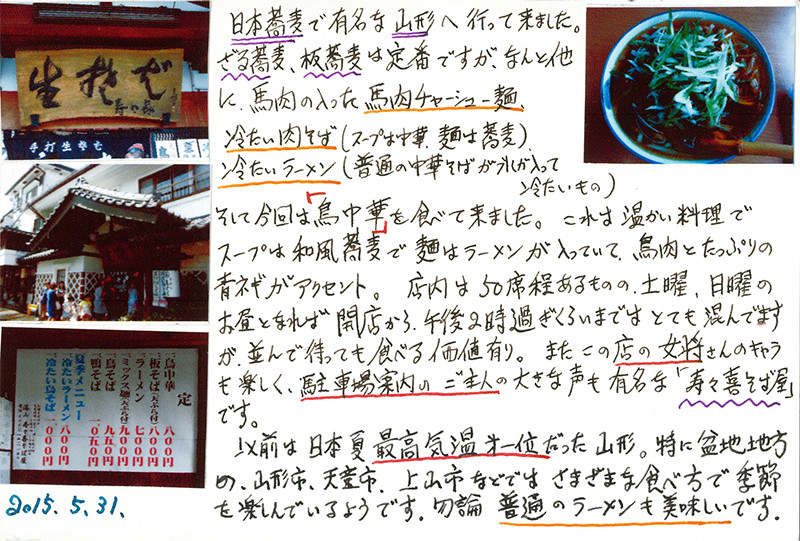 日本蕎麦で有名な山形へ行って来ました。
ざる蕎麦、板蕎麦は定番ですが、なんと他
に、馬肉の入った馬肉チャーシュー麺、
冷たい肉そば(スープは中華、麺は蕎麦)、
冷たいラーメン(普通の中華そばが氷が入って
冷たいもの)
そして今回は「鳥中華」を食べて来ました。これは温かい料理で
スープは和風蕎麦で麺はラーメンが入っていて、鳥肉とたっぷりの
青ネギがアクセント。店内は50席程あるものの、土曜、日曜の
お昼となれば開店から、午後2時過ぎくらいまではとても混んでます
が、並んで待っても食べる価値有り。またこの店の女将さんのキャラ
も楽しく、駐車場案内のご主人の大きな声も有名な「寿々喜そば屋」
です。
以前は日本夏最高気温オ一位だった山形。特に盆地地方
の、山形市、天童市、上山市などではさまざまな食べ方で季節
を楽しんでいるようです。勿論普通のラーメンも美味しいです。
生そば
手打生そば
定
一、鳥中華 八〇〇円
一、板そば(天ぷら付) 八〇〇円
一、ラーメン 七〇〇円
一、ミックス麺(天ぷら付) 九〇〇円
一、鳥そば 九五〇円
一、鴨そば 一〇五〇円
夏季メニュー
一、冷たいラーメン 八〇〇円
一、冷たい鳥そば 一〇〇〇円
2015.5.31.